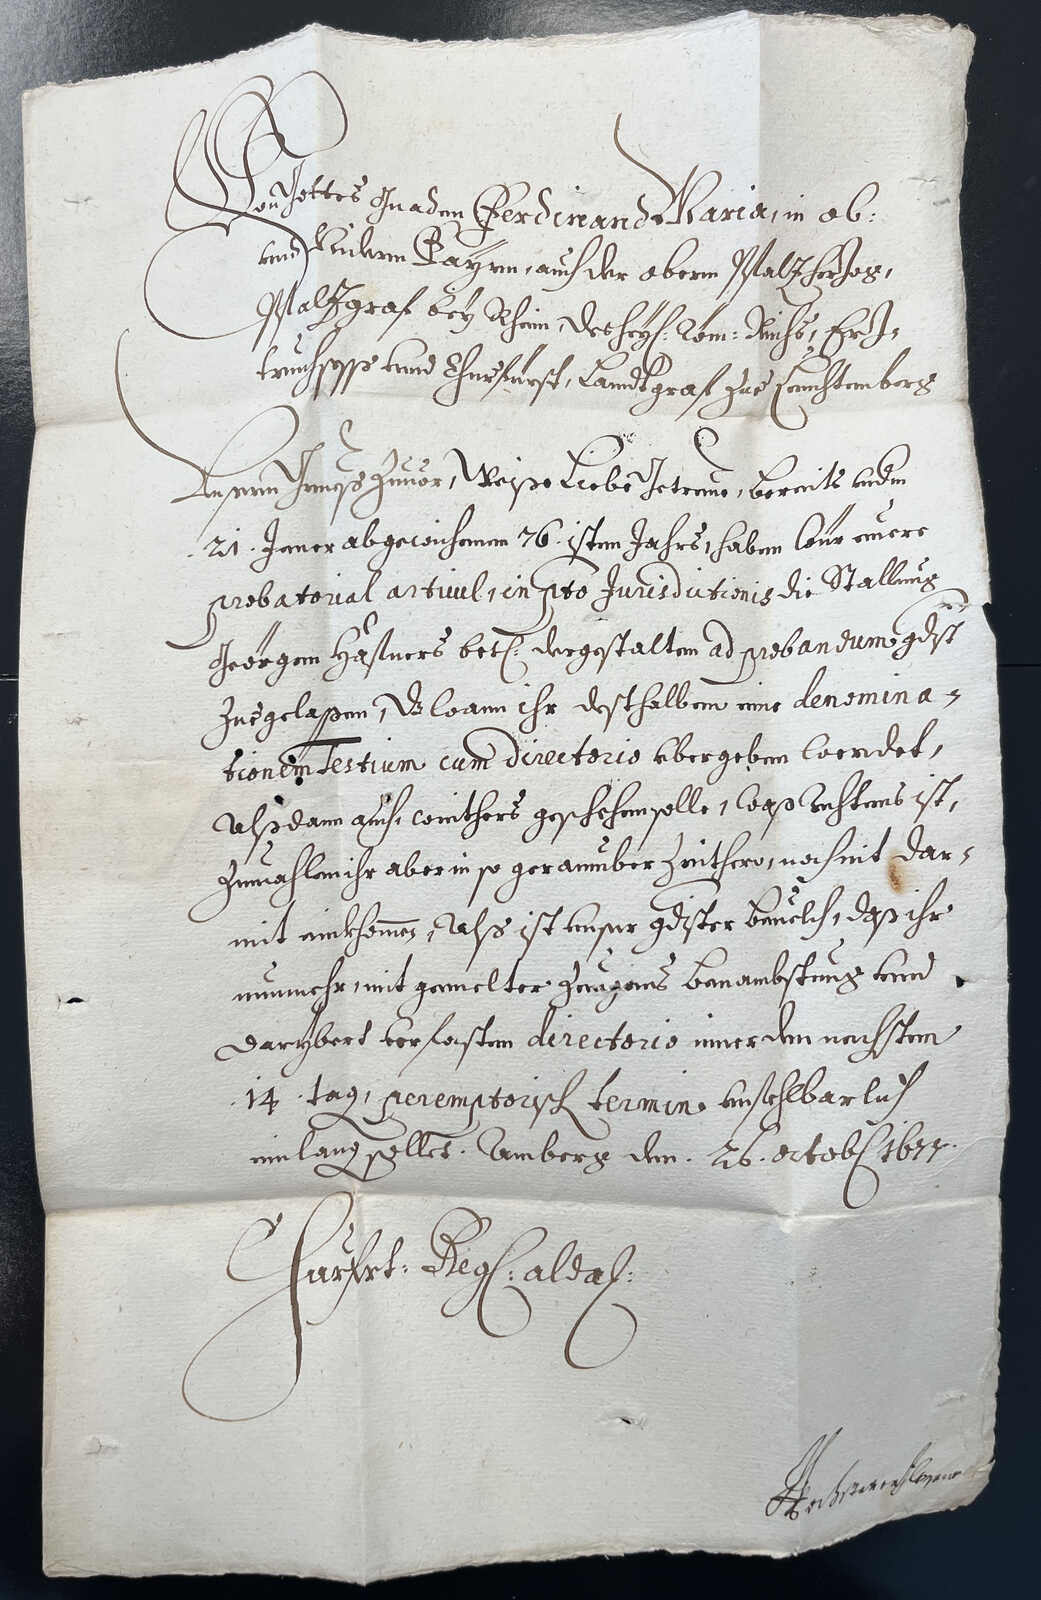 Von Gottes Gnaden Ferdinand Maria, in ob:
und Nidern Bayrn, auch der obern Pfalz Herzog,
Pfalzgraf bey Rhein, des heyl: Röm: Reichs, Erz-
truchseß und Churfürst, Landtgraf zue Leuchtenberg
Unsern Grueß Zuuor, Liebe Getreue, bereits undterm
21. Jener abgewichenen 76.isten Jahrs, haben wür euere
probatorial articul, in pto Jurisdictionis die Stallung
Geörgen betr: dergestalten ad probandum gdist
zuegelassen, da wann ihr desthalben eine denomina-
tionem Testium cum directorio übergeben werdet,
Alßdann auch, weithers geschehen solle, was Rechtens ist,
Zumahlen ihr aber in so geraumber Zeithero, noch nit dar-
mit einkhommen, Alß ist unser gdister Beuelch, daß ihr
nunmehr, mit gemelter Zeugens Benambstung und
darüber verfasten directorio inner den nechsten
14. tag, peremptorisch termin unfehlbarlich
einlangen sollet. Amberg den 26. octobr: 1677.
Churfrt: Reg: alda: